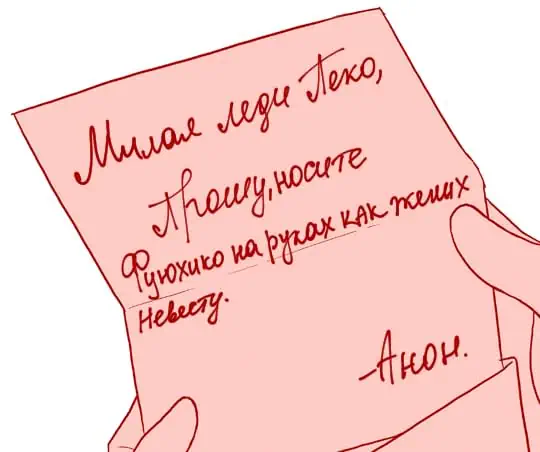 Милая леди Пеко,
Прошу, носите
Фуюхико на руках как жених
невесту.
-Анон.